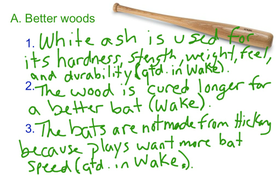 A. Better woods
1. White ash is used for
its hardness, stength, weight, feel,
and durability (qtd. in Wake).
2. The wood is cured longer for
a better bat (Wake).
3. The bats are not made from Hickory
because plays want more bat
speed (qtd. in Wake).